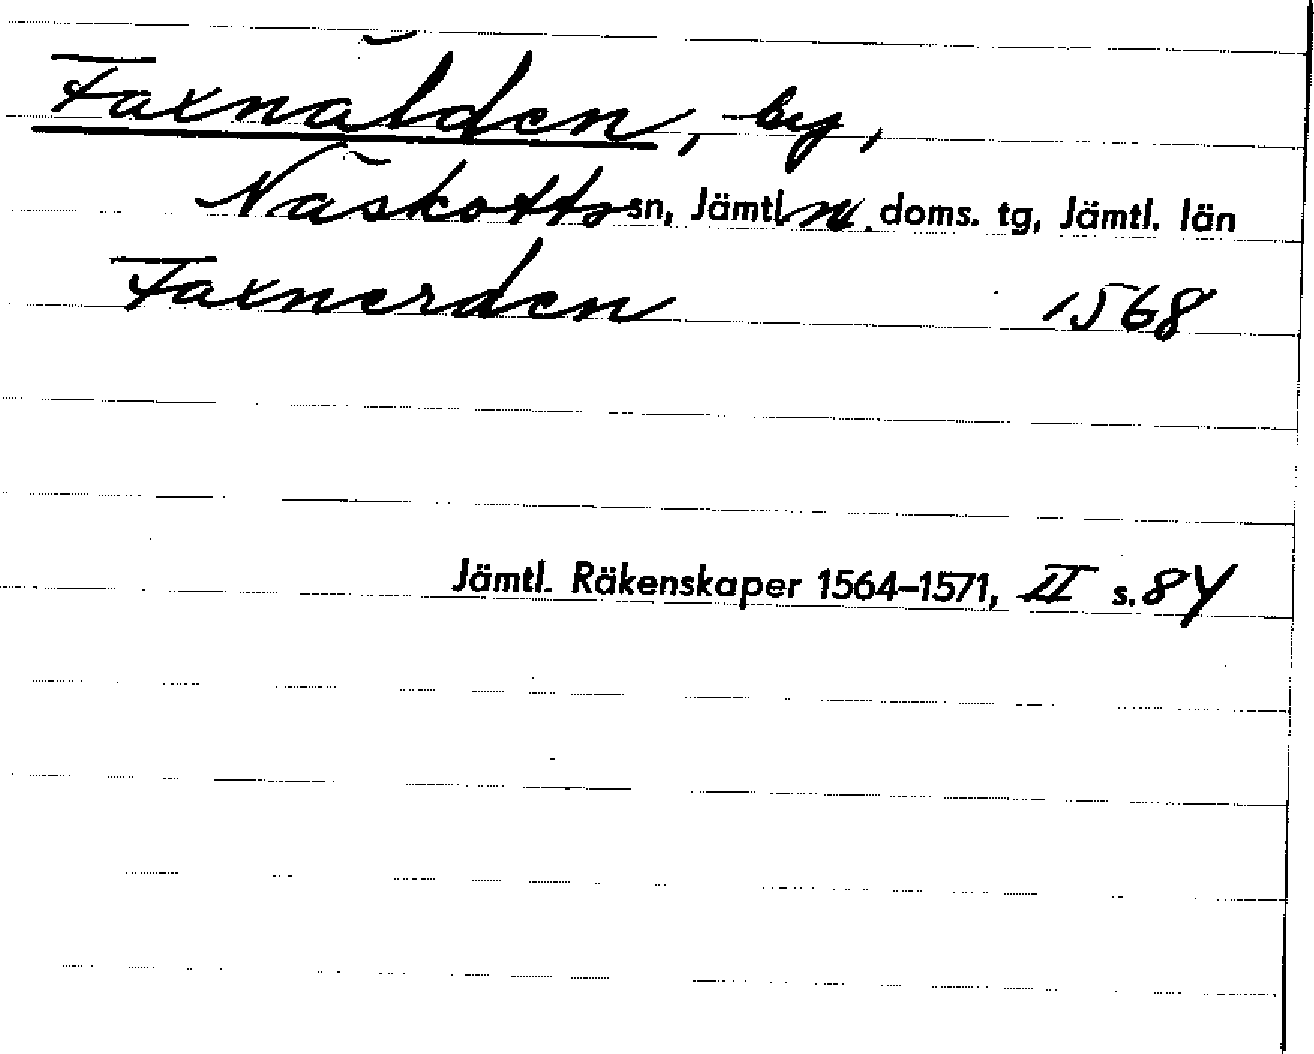 Faxnälden, by,
Näskotts sn, Jämtl. n. doms. tg, Jämtl. län
Faxnerden 1568
Jämtl. Räkenskaper 1564–1571, II s. 84